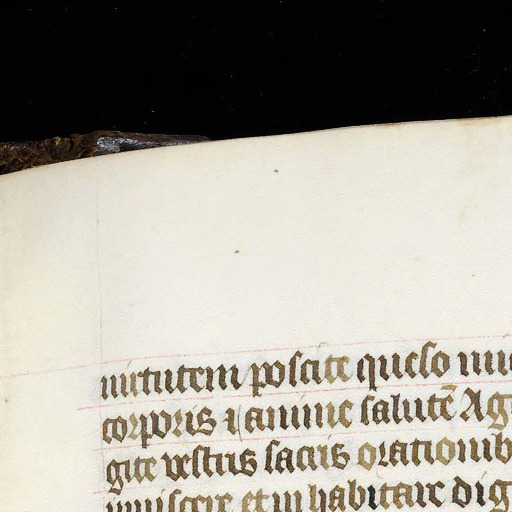 uirtutem poscite queso mi
corporis ⁊ anime salutē Ag
gite vestris sacris orationib
et inhabitare dig